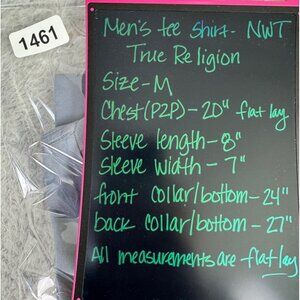 1461
Men's tee shirt - NWT
True Religion
Size - M
Chest (P2P) - 20" flat lay
Sleeve length - 8"
Sleeve width - 7"
front collar/bottom - 24"
back collar/bottom - 27"
All measurements are flat lay